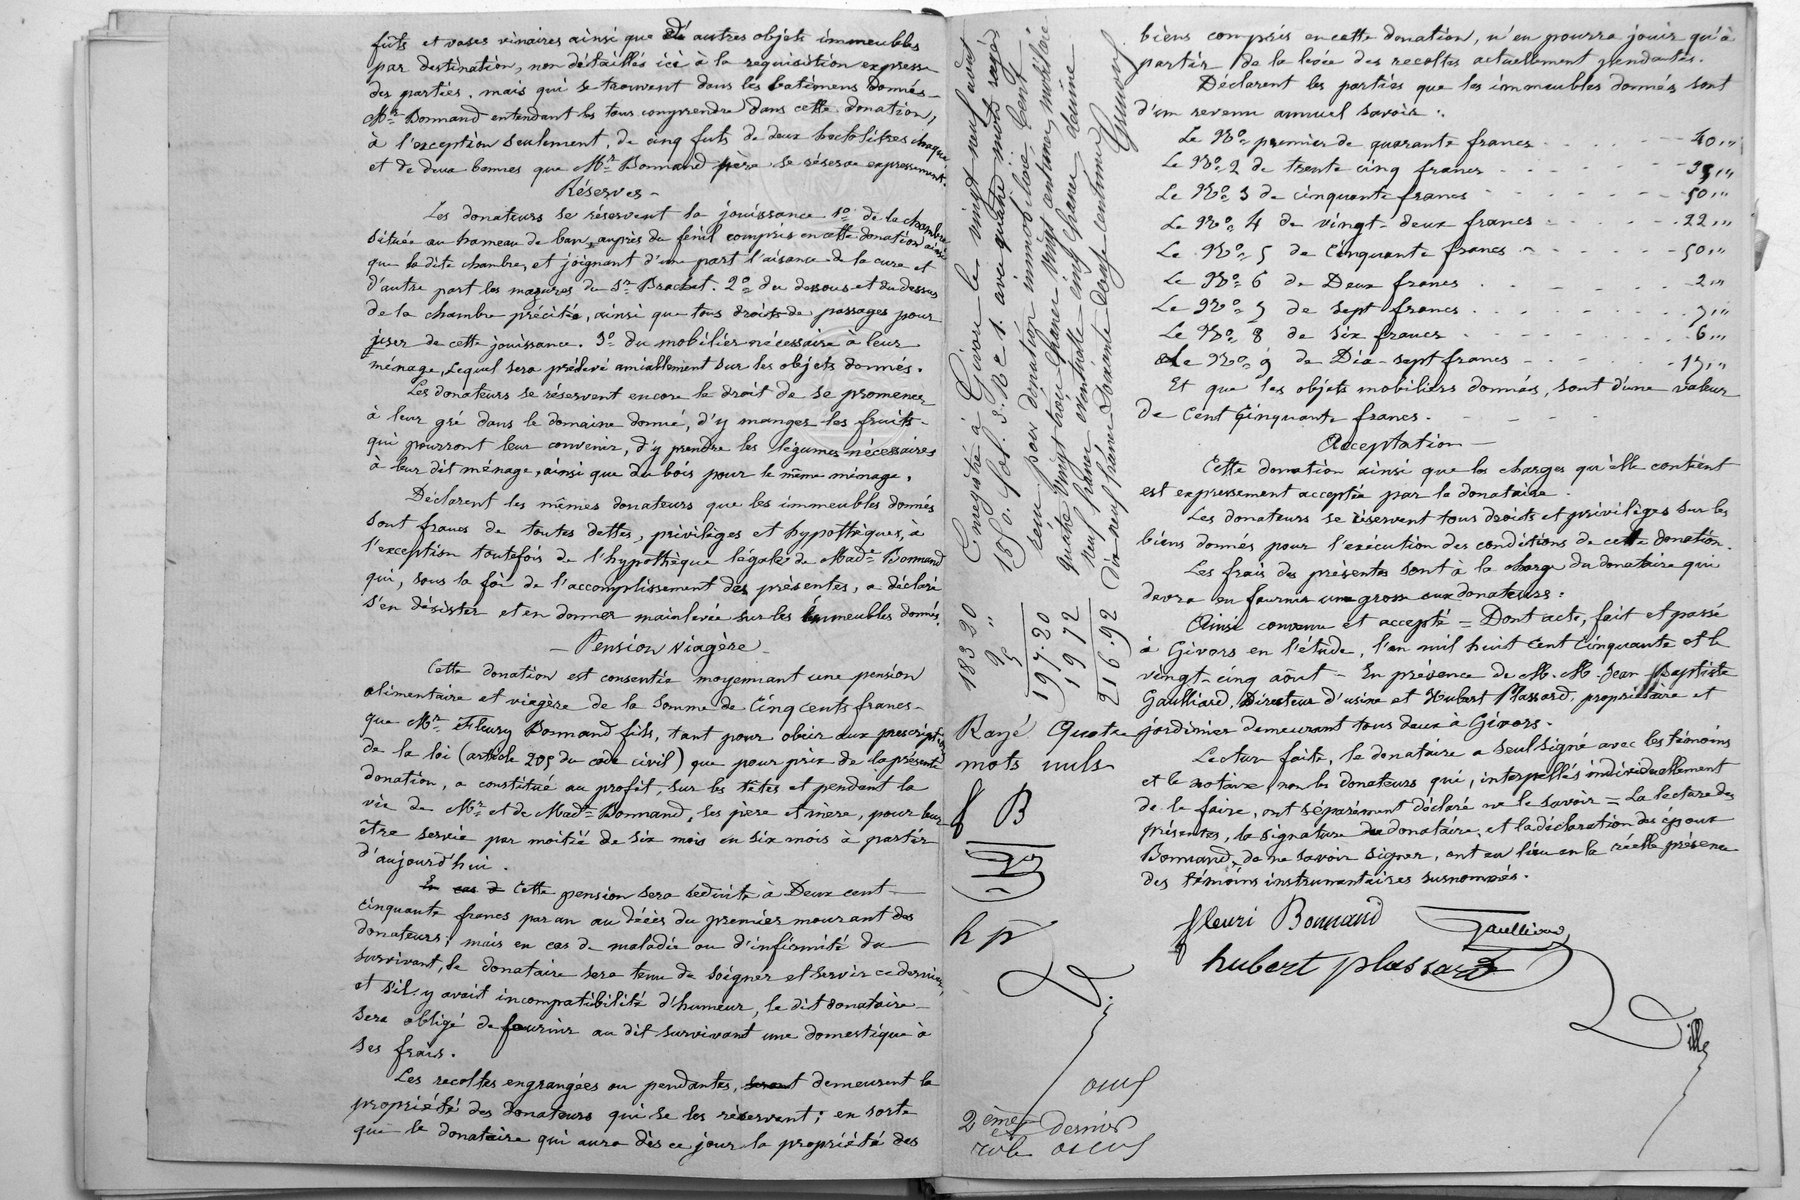 fûts et vases vinaires ainsi que autres objets immeubles
par destination, non détaillés ici à la requisition expresse
des parties, mais qui se trouvent dans les batimens donnés
Mr. Bonnand entendant les tous comprendre dans cette donation,
à l'exception seulement, de cinq futs de deux hectolitres chaque
et de deux bennes que Mr. Bonnand père se réserve expressement.
Réserves -
Les donateurs se réservent la jouissance 1o. de la chambre
située au hameau de ban, auprès du fenil compris en cette donation ainsi
que la dite chambre, et joignant d'une part l'aisance de la cure et
d'autre part les mazures du Sr. Brachet. 2o. du dessous et du dessus
de la chambre précitée, ainsi que tous droits de passages pour
user de cette jouissance. 3o. du mobilier nécessaire à leur
ménage, lequel sera prélevé amiablement sur les objets donnés.
Les donateurs se réservent encore le droit de se promener
à leur gré dans le domaine donné, d'y manger les fruits
qui pourront leur convenir, d'y prendre les légumes nécessaires
à leur dit ménage, ainsi que du bois pour le même ménage.
Déclarent les mêmes donateurs que les immeubles donnés
sont francs de toutes dettes, privilèges et hypothèques, à
l'exception toutefois de l'hypothèque légale de Made. Bonnand
qui, sous la foi de l'accomplissement des présentes, a déclaré
s'en désister et en donner mainlevée sur les immeubles donnés.
- Pension viagère -
Cette donation est consentie moyennant une pension
alimentaire et viagère de la somme de Cinq cents francs -
que Mr. Fleury Bonnand fils, tant pour obéir aux prescriptions
de la loi (article 205 du code civil) que pour prix de la présente
donation, a constitué au profit, sur les têtes et pendant la
vie de Mr. et de Made. Bonnand, ses père et mère, pour leur
être servie par moitié de six mois en six mois à partir
d'aujourd'hui.
En cas d Cette pension sera réduite à Deux cent
cinquante francs par an au décès du premier mourant des
donateurs; mais en cas de maladie ou d'infirmité du
survivant, le donataire sera tenu de soigner et servir ce dernier,
et s'il y avait incompatibilité d'humeur, le dit donataire
sera obligé de fournir au dit survivant une domestique à
ses frais.
Les recoltes engrangées ou pendantes, seront demeurent la
propriété des donateurs qui se les réservent; en sorte
que le donataire qui aura dès ce jour la propriété des
Enregistré à Givors le vingt neuf août
1850. fol. 3. R. et V. avec quatre mots rayés
reçu pour donation immobilière, cent
quatre vingt trois francs vingt centimes, mobilière
neuf francs éventuelle cinq francs decime
dix neuf francs soixante douze centimes
183 20
9 "
5
197. 20
19 72
216. 92
Rayé Quatre
mots nuls
f B
h p
2ème et dernier
rôle
biens compris en cette donation, n'en pourra jouir qu'à
partir de la levée des recoltes actuellement pendantes.
Déclarent les parties que les immeubles donnés sont
d'un revenu annuel savoir:
Le No. premier de quarante francs 40,"
Le No. 2 de trente cinq francs 35,"
Le No. 3 de cinquante francs 50,"
Le No. 4 de vingt-deux francs 22,"
Le No. 5 de Cinquante francs 50,"
Le No. 6 de Deux francs 2,"
Le No. 7 de sept francs 7,"
Le No. 8 de six francs 6,"
Le No. 9 de Dix-sept francs 17,"
Et que les objets mobiliers donnés, sont d'une valeur
de Cent Cinquante francs.
Acceptation
Cette donation ainsi que les charges qu'elle contient
est expressement acceptée par le donataire.
Les donateurs se réservent tous droits et privilèges sur les
biens donnés pour l'exécution des conditions de cette donation.
Les frais des présentes sont à la charge du donataire qui
devra en fournir une grosse aux donateurs.
Ainsi convenu et accepté = Dont acte, fait et passé
à Givors en l'étude, l'an mil huit cent cinquante et le
vingt-cinq août - En présence de M. M. Jean Baptiste
Gaulliard, Directeur d'usine et Hubert Plassard, propriétaire et
jardinier demeurant tous deux à Givors.
Lecture faite, le donataire a seul signé avec les témoins
et le notaire, non les donateurs qui, interpellés individuellement
de le faire, ont séparément déclaré ne le savoir = La lecture des
présentes, la signature du donataire, et la déclaration des époux
Bonnand, de ne savoir signer, ont eu lieu en la réelle présence
des témoins instrumentaires susnommés.
fleuri Bonnand Gaulliard
hubert plassard